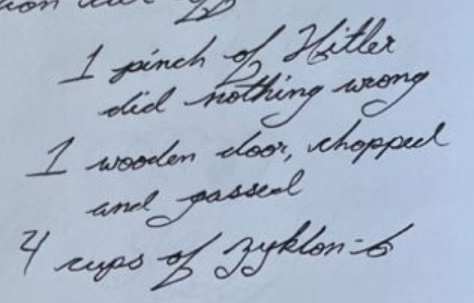 1 pinch of Hitler
did nothing wrong
1 wooden door, chopped
and gassed
4 cups of zyklon-b